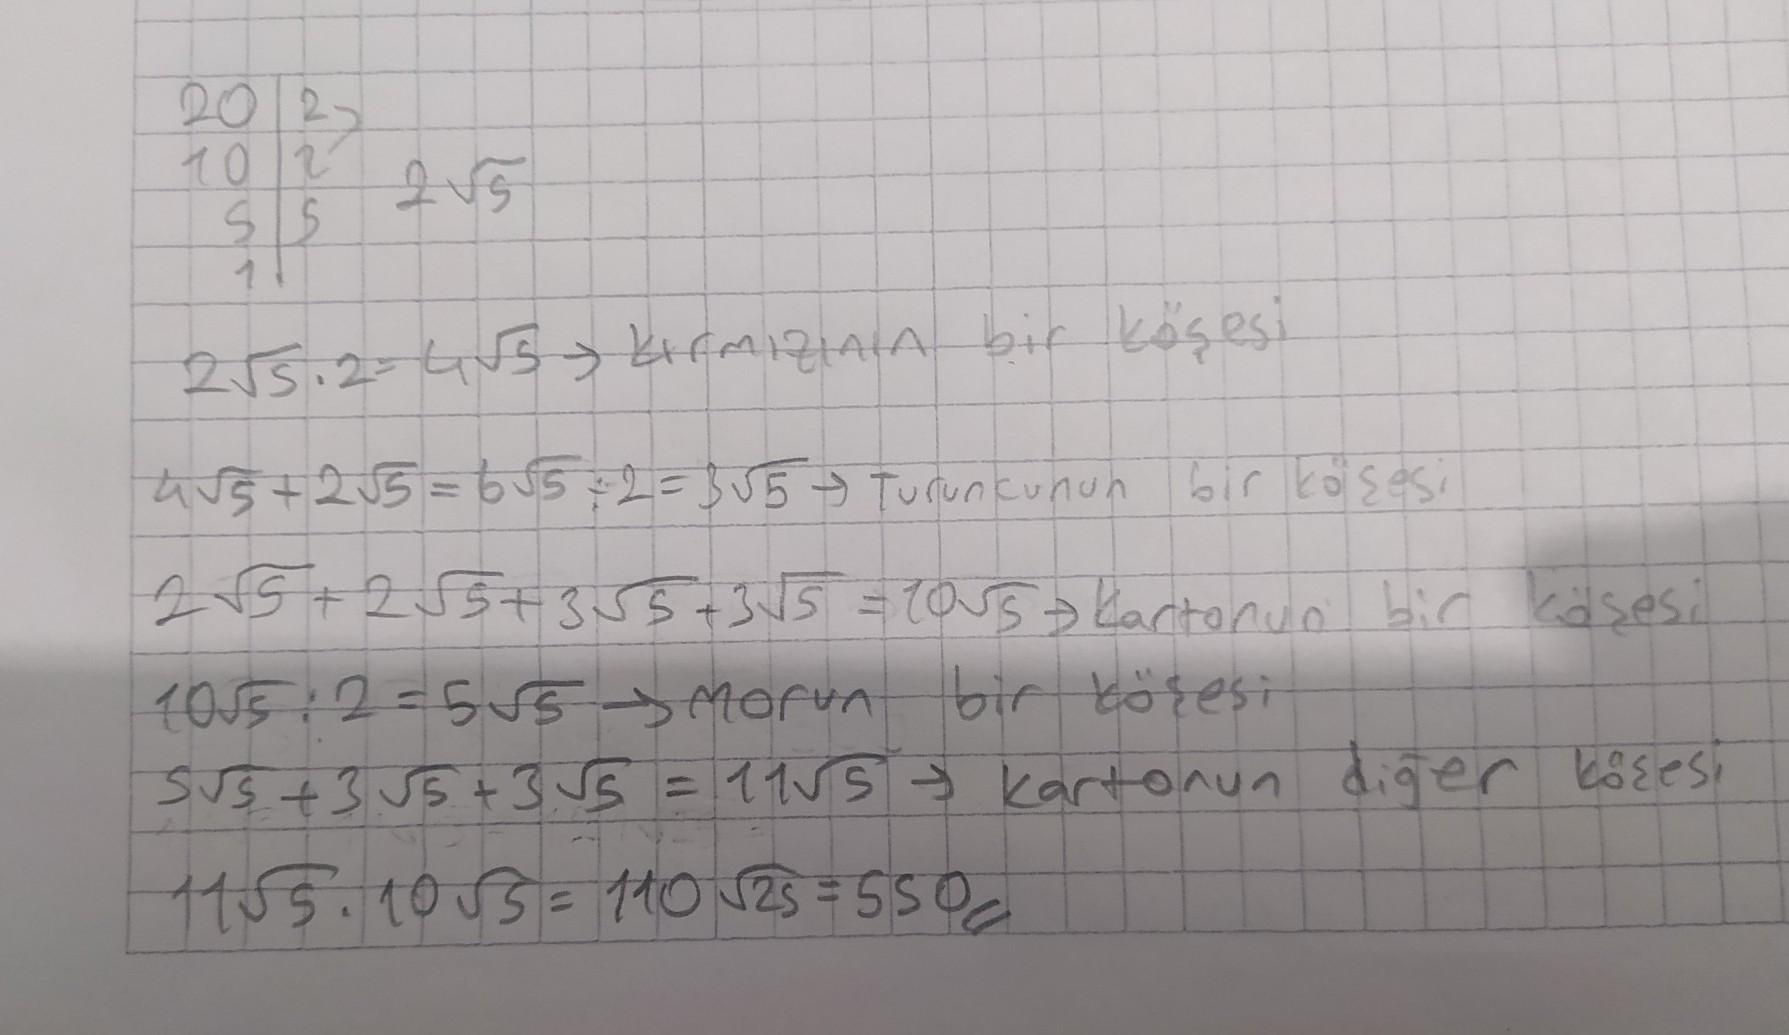 20 | 2
10 | 2
5 | 5
1
2√5
2√5.2=4√5→ Kırmızının bir köşesi
4√5+2√5=6√5÷2=3√5→ Turuncunun bir köşesi
2√5+2√5+3√5+3√5=10√5→ Kartonun bir köşesi
10√5:2=5√5→ Morun bir köşesi
5√5+3√5+3√5=11√5→ Kartonun diğer köşesi
11√5.10√5=110√25=550